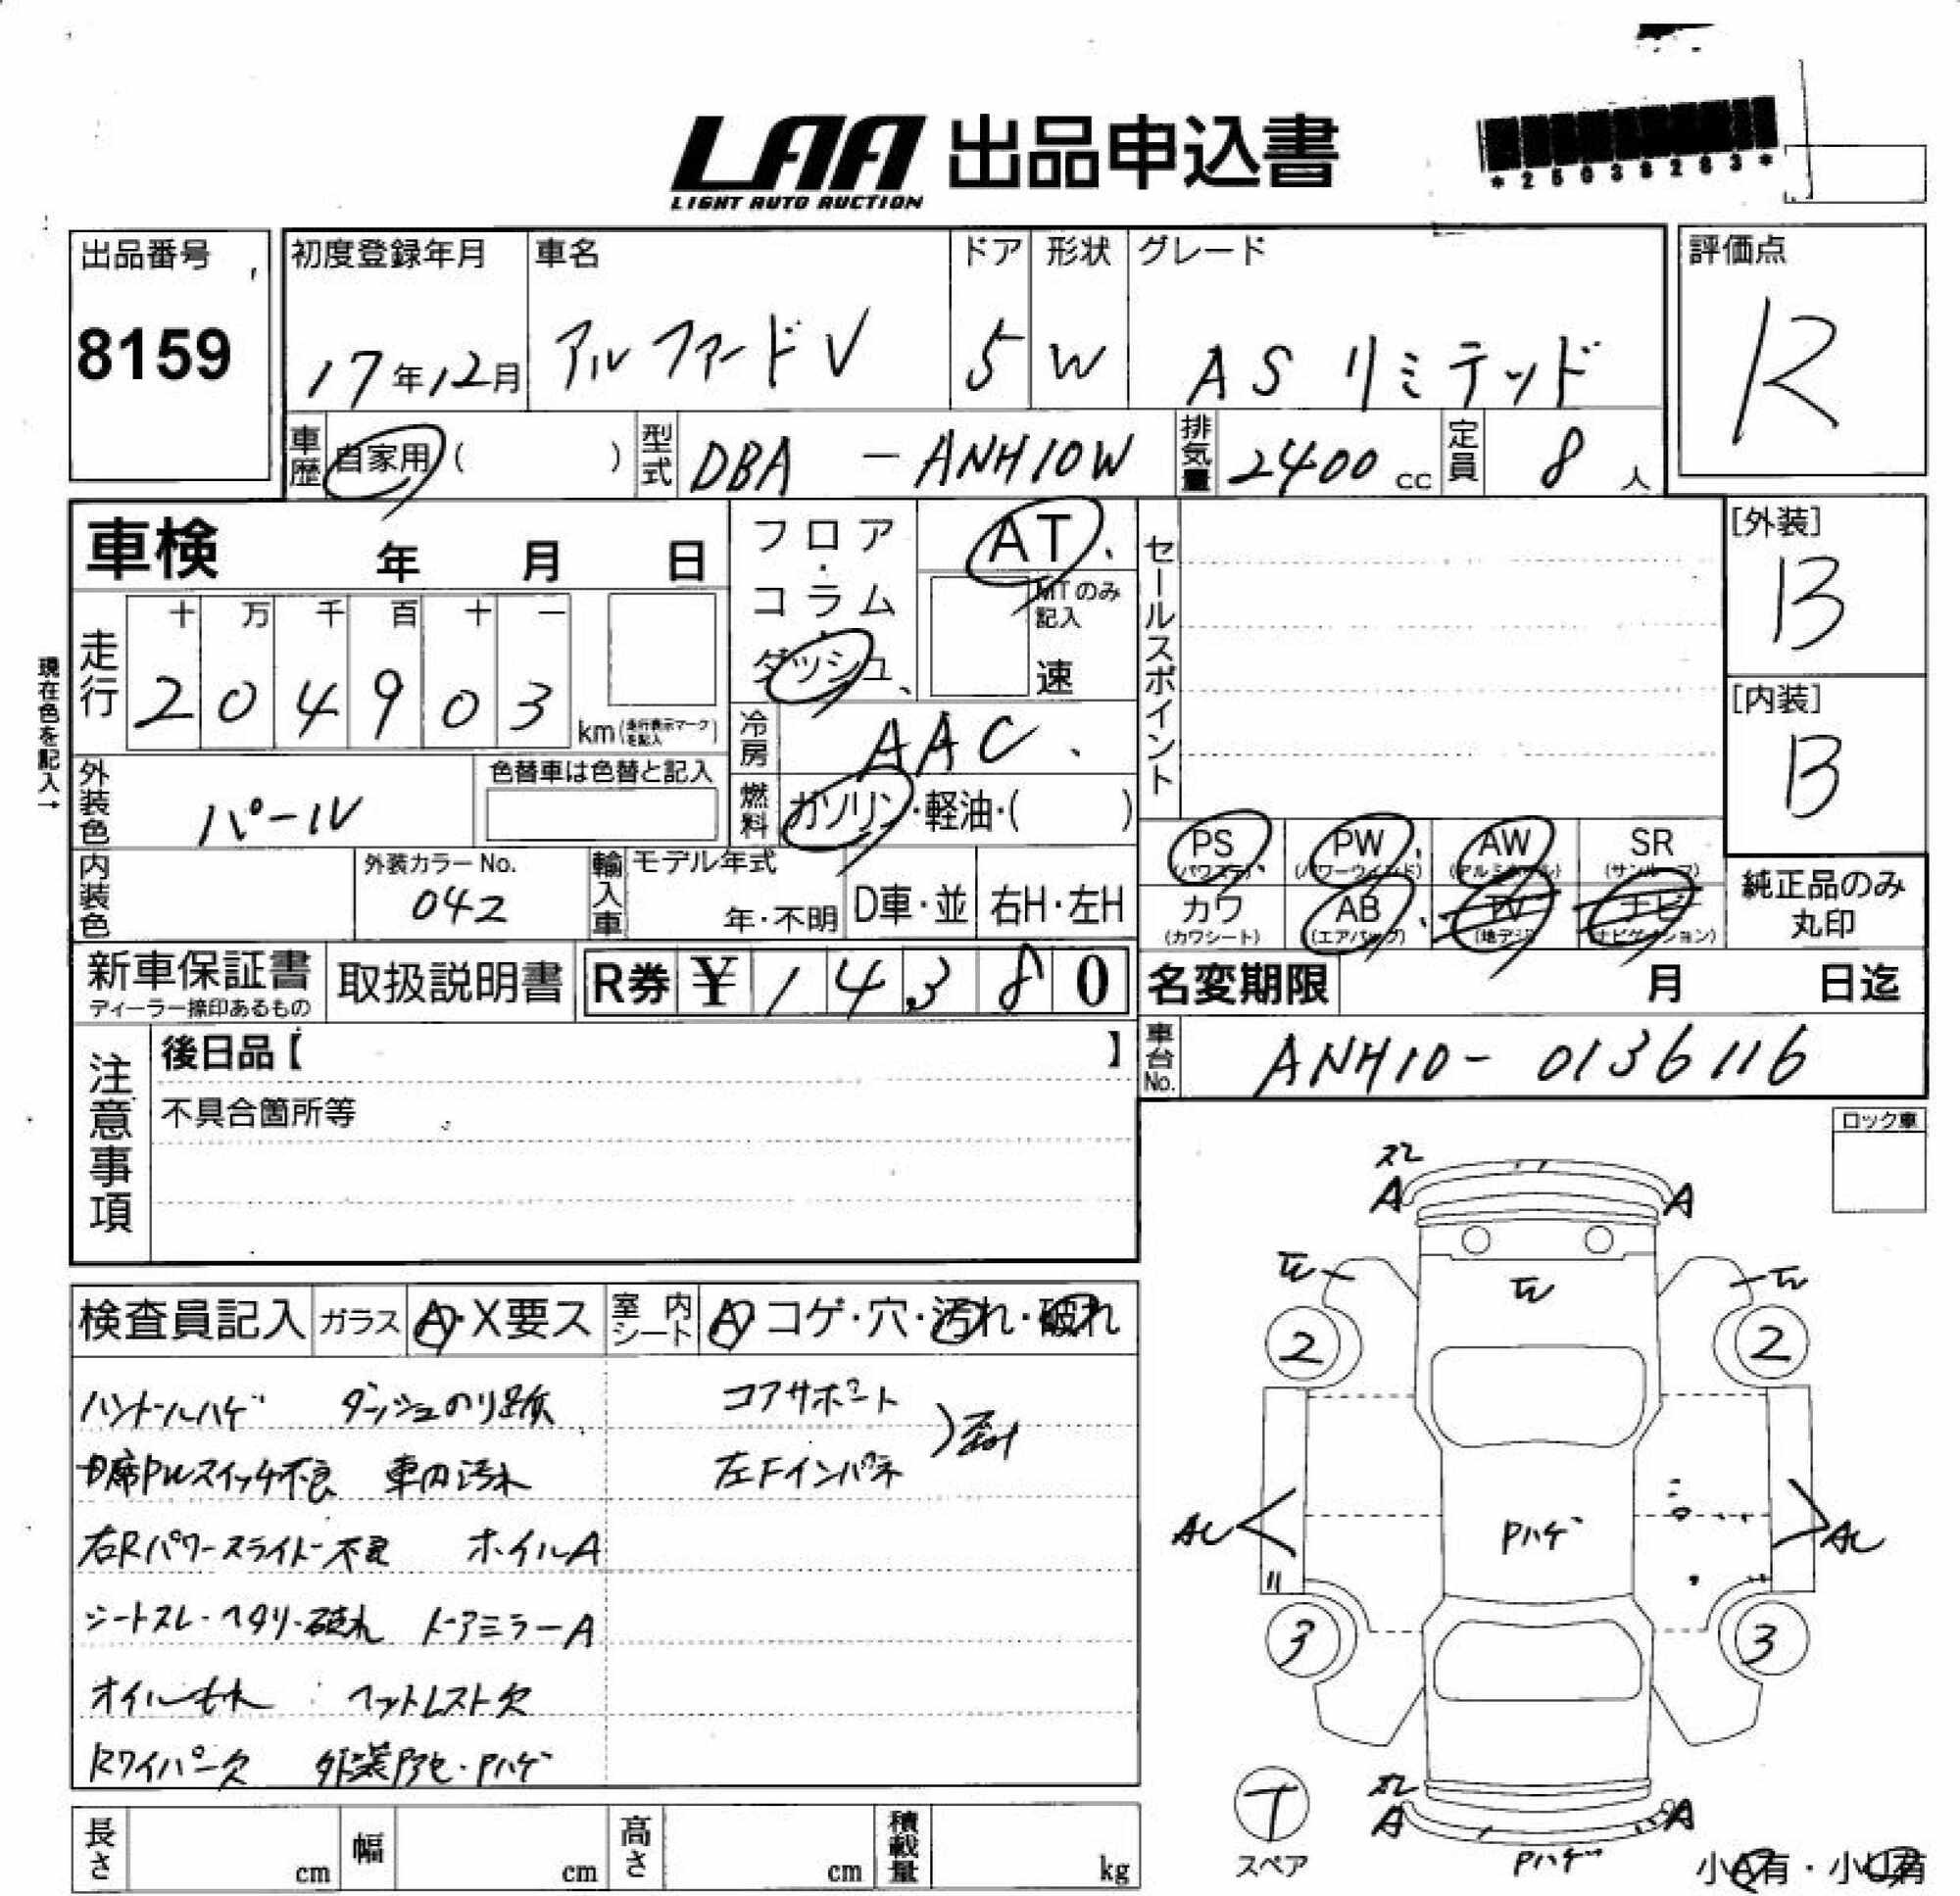 LAA 出品申込書
LIGHT AUTO AUCTION
*25038263*
出品番号
8159
初度登録年月
17年12月
車名
アルファードV
ドア
5
形状
W
グレード
AS リミテッド
評価点
R
車歴 自家用 ( )
型式 DBA - ANH10W
排気量 2400 cc
定員 8 人
車検 年 月 日
フロア・コラム・ダッシュ
AT
MTのみ記入
速
セールスポイント
[外装]
B
[内装]
B
現在色を記入→
走行
十 万 千 百 十 一
2 0 4 9 0 3
km(走行表示マークを記入)
冷房 AAC
外装色 パール
色替車は色替と記入
燃料 ガソリン・軽油・( )
内装色
外装カラーNo.
042
輸入車
モデル年式
年・不明
D車・並
右H・左H
PS (パワステ)
PW (パワーウインド)
AW (アルミホイール)
SR (サンルーフ)
カワ (カワシート)
AB (エアバック)
TV (地デジ)
ナビ (ナビゲーション)
純正品のみ丸印
新車保証書
ディーラー捺印あるもの
取扱説明書
R券 ¥ 1 4 3 8 0
名変期限 月 日迄
車台No. ANH10-0136116
注意事項
後日品【 】
不具合箇所等
ロック車
検査員記入
ガラス A・X要ス
室内シート A コゲ・穴・汚れ・破れ
ハンドルハゲ ダッシュのり跡
コアサポート
D席PWスイッチ不良 車内汚れ
左Fインパネ
右Rパワースライド不良 ホイルA
シートスレ・ヘタリ・破れ ドアミラーA
オイルもれ ヘットレスト欠
Rワイパー欠 外装アセ・Pハゲ
長さ cm
幅 cm
高さ cm
積載量 kg
スレ
A
A
W
W
W
2
2
Pハゲ
3
3
スペア
T
スレ
A
A
Pハゲ
小A有・小U有